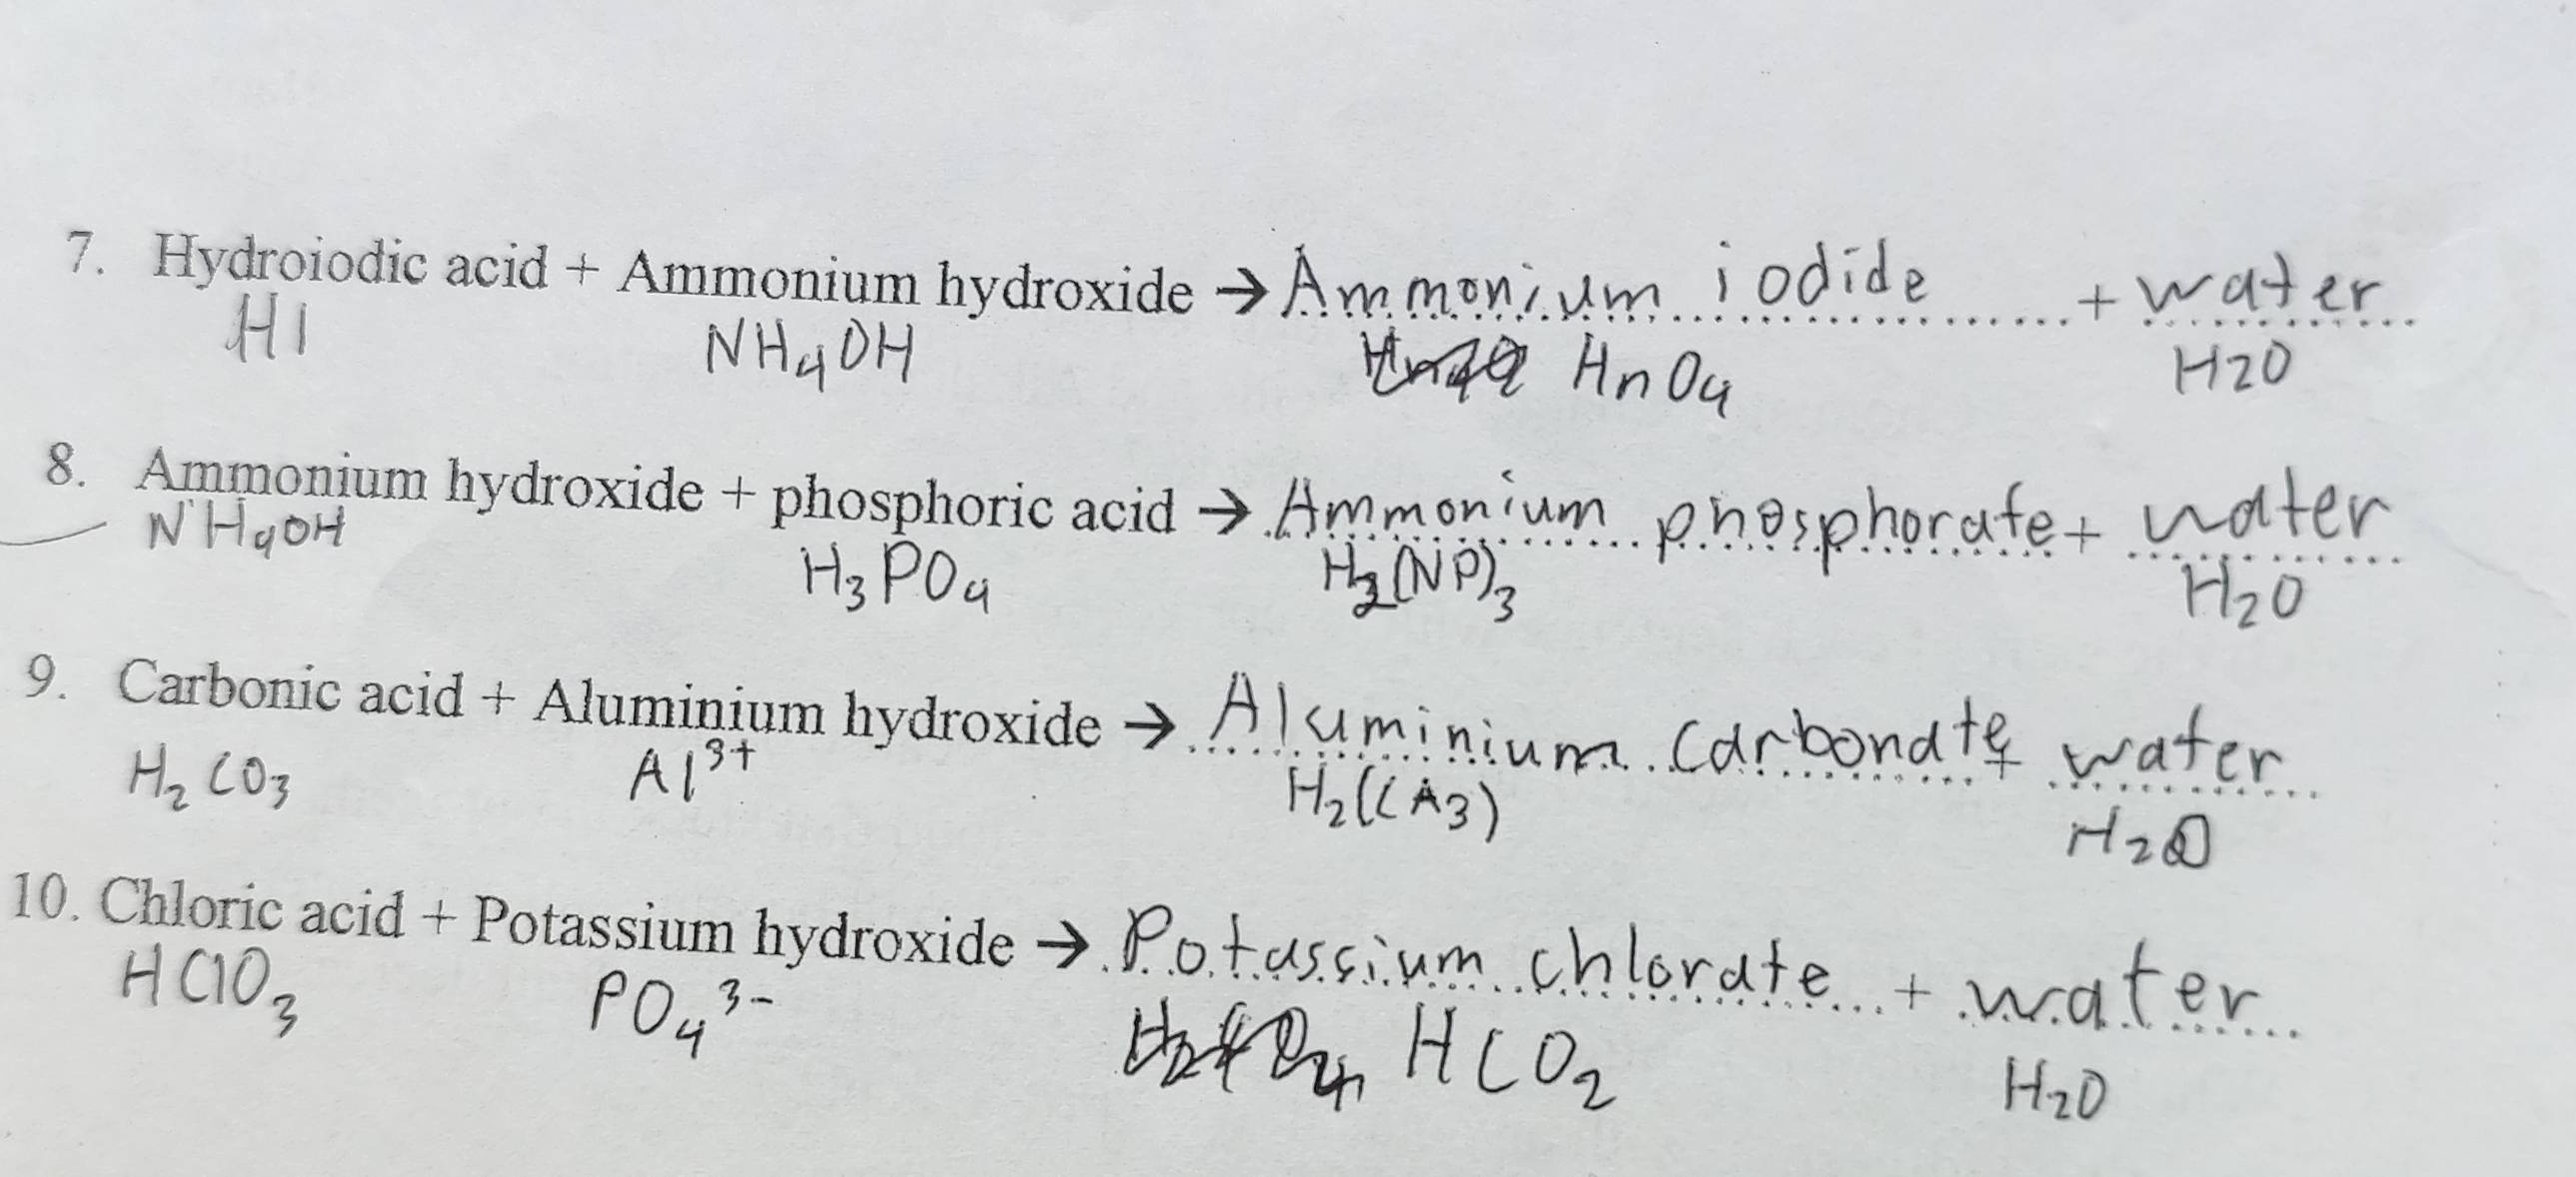 7. Hydroiodic acid + Ammonium hydroxide → Ammonium iodide + water
HI NH₄OH HnO₄ H2O
8. Ammonium hydroxide + phosphoric acid → Ammonium phosphorate + water
NH₄OH H₃PO₄ H₂(NP)₃ H₂O
9. Carbonic acid + Aluminium hydroxide → Aluminium carbonate + water
H₂CO₃ Al³⁺ H₂(CA₃) H₂O
10. Chloric acid + Potassium hydroxide → Potassium chlorate + water
HClO₃ PO₄³⁻ HCO₂ H₂O